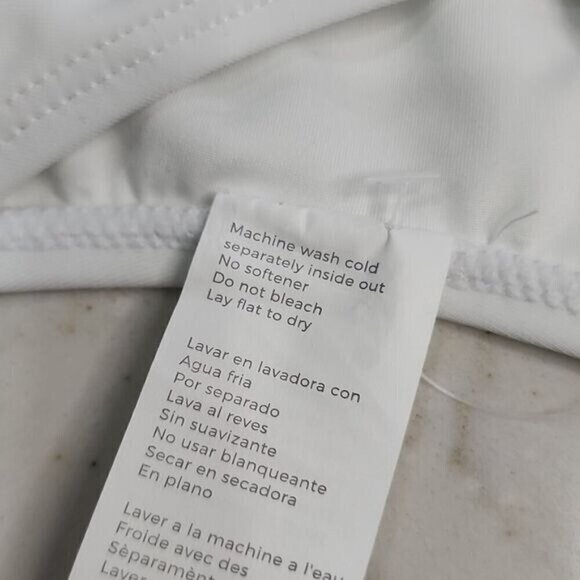 Machine wash cold
separately inside out
No softener
Do not bleach
Lay flat to dry
Lavar en lavadora con
Agua fria
Por separado
Lava al reves
Sin suavizante
No usar blanqueante
Secar en secadora
En plano
Laver a la machine a l'eau
Froide avec des
Sèparamèn
Laver